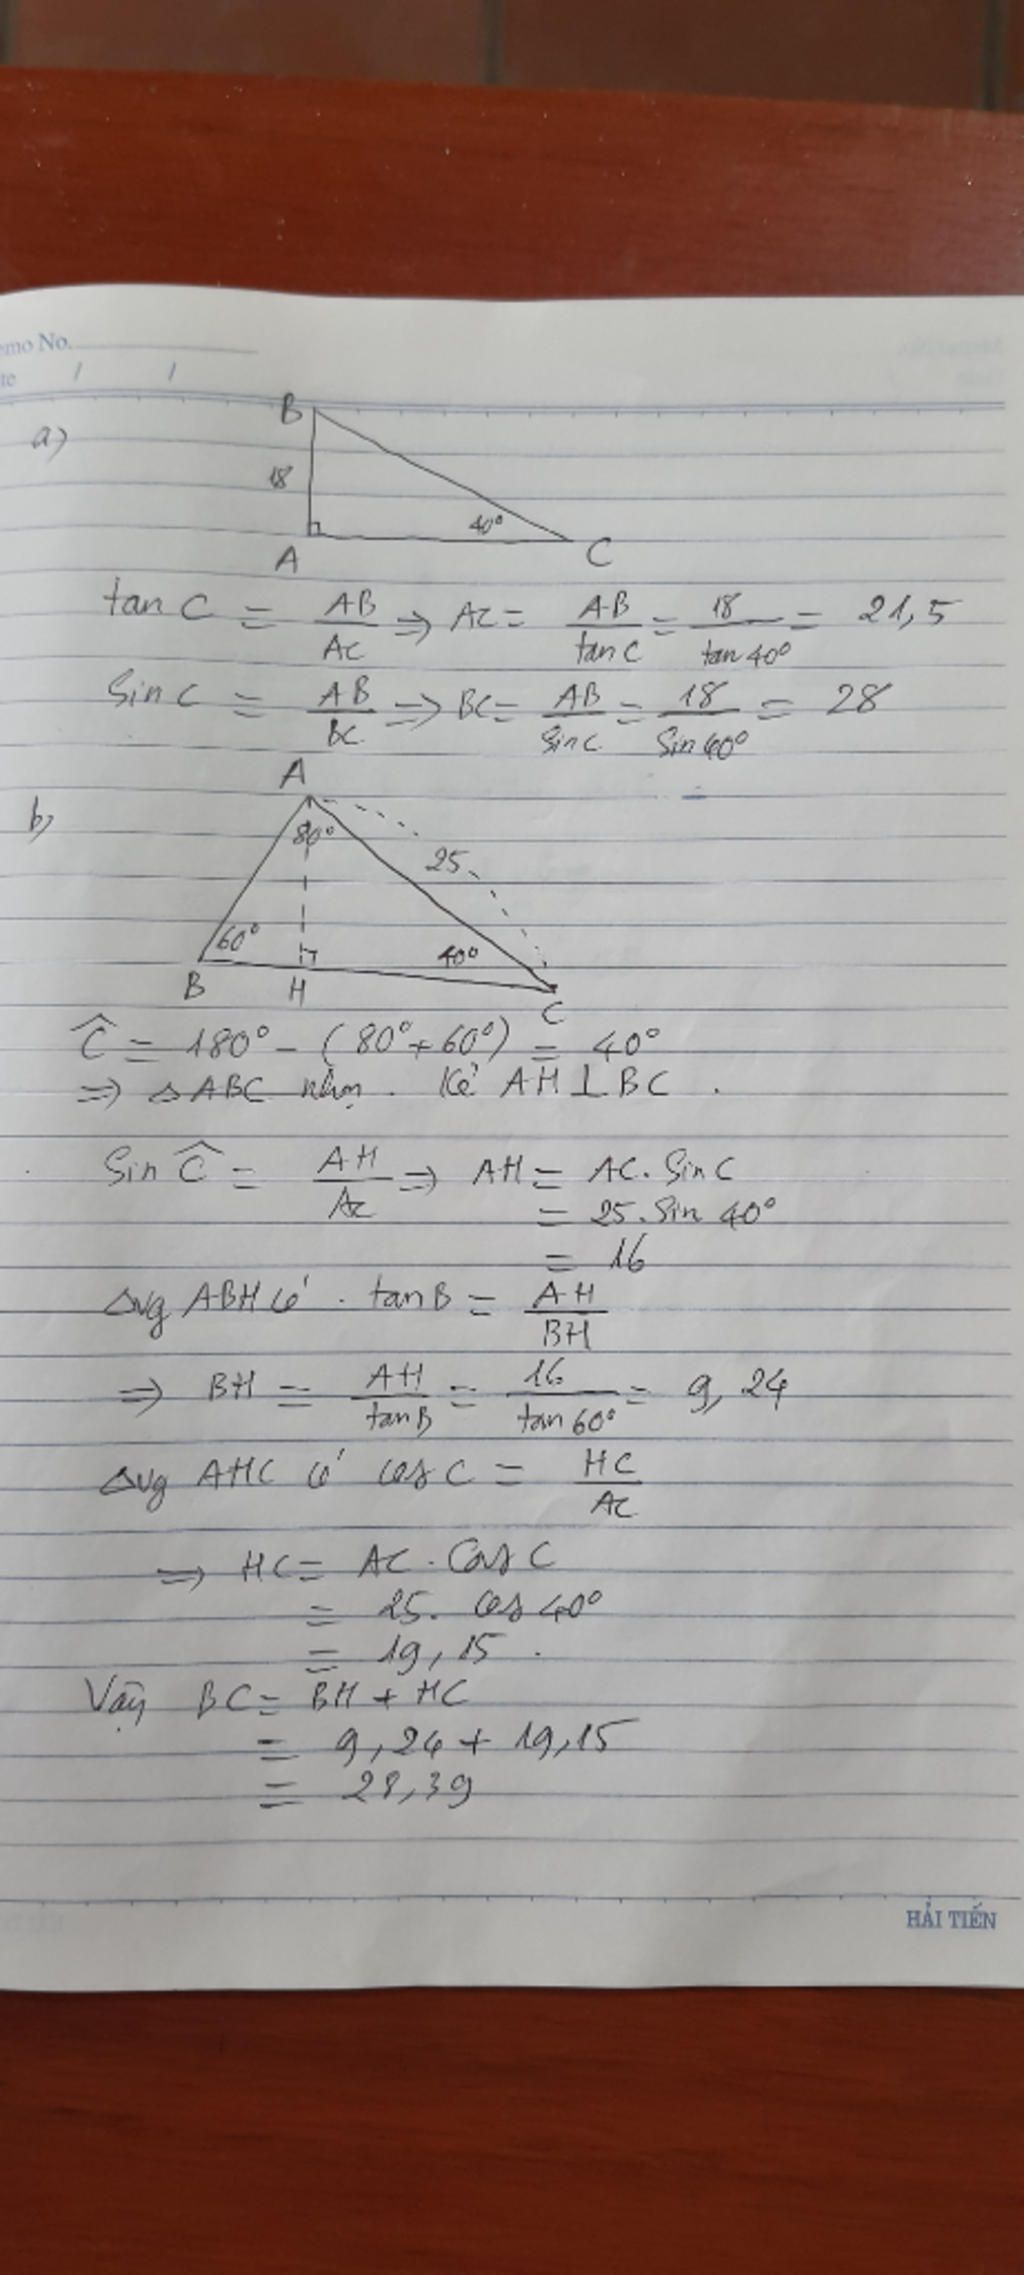 emo No.
te / /
a)
B
18
40°
A
C
tan C = AB/AC ⇒ AC = AB/tan C = 18/tan 40° = 21,5
Sin C = AB/BC ⇒ BC = AB/Sin C = 18/Sin 40° = 28
b)
A
80°
25
60°
40°
B
H
C
Ĉ = 180° - (80° + 60°) = 40°
⇒ △ABC nhọn. Kẻ AH ⊥ BC.
Sin Ĉ = AH/AC ⇒ AH = AC. Sin C
= 25. Sin 40°
= 16
△vg ABH có. tan B = AH/BH
⇒ BH = AH/tan B = 16/tan 60° = 9,24
△vg AHC có cos C = HC/AC
⇒ HC = AC. Cos C
= 25. Cos 40°
= 19,15.
Vậy BC = BH + HC
= 9,24 + 19,15
= 28,39
HẢI TIẾN